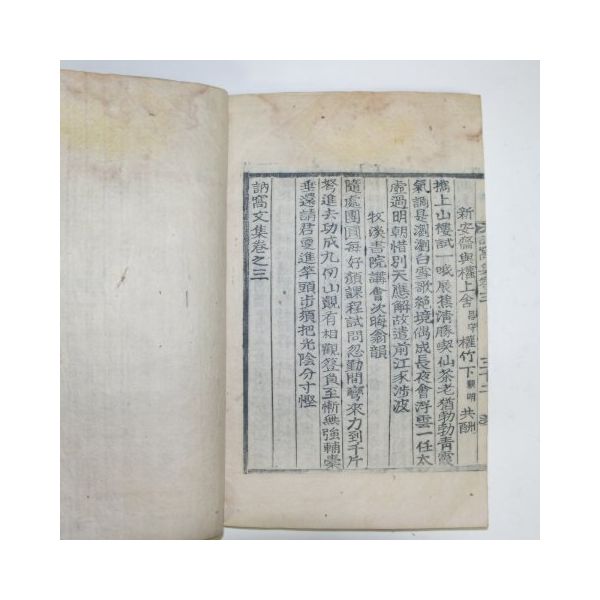 新安齋與權上舍昌宇權竹下顯明共酬
携上山樓試一哦晨蕉清勝喫仙茶老猶勃勃靑霞
氣調是瀏瀏白雪歌絶境偶成長夜會浮雲一任太
虛過明朝惜別天應解故遣前江永涉波
牧溪書院講會次晦翁韻
隨處團圓每好顔課程試問忽勤間彎來力到千斤
弩進去功成九仞山觀有相觀登負至慚無強輔棄
垂還請君更進竿頭步須把光陰分寸慳
訥窩文集卷之三